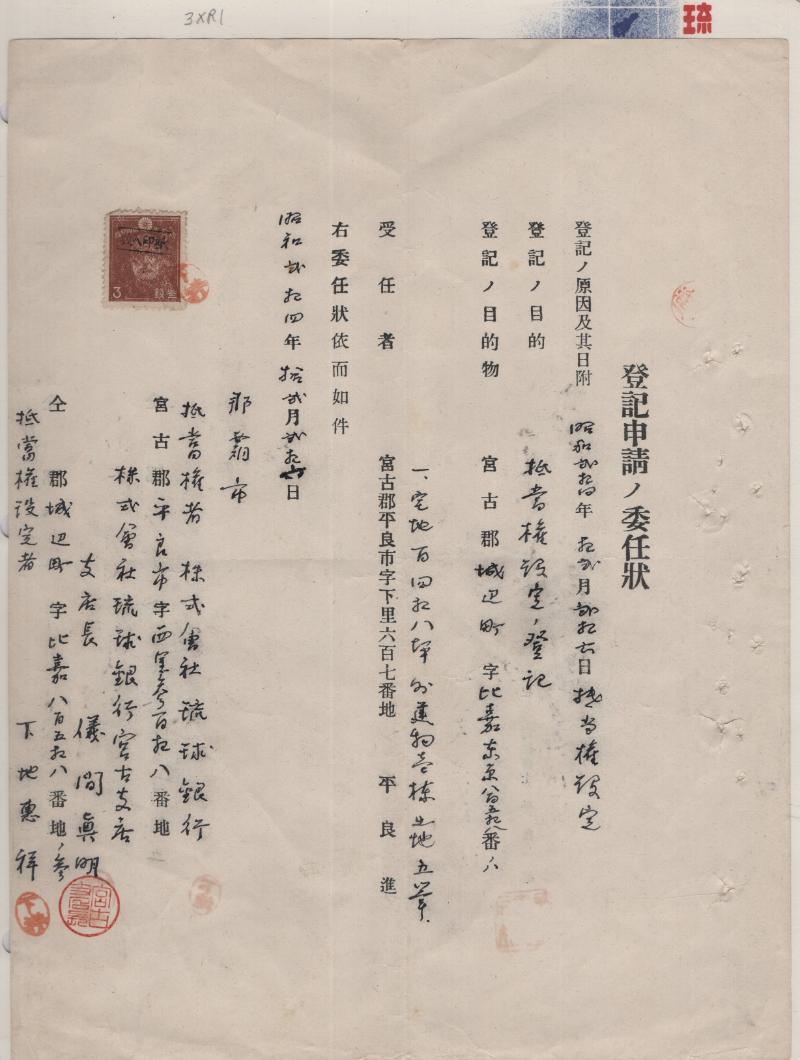 3XR1
琉
登記申請ノ委任狀
登記ノ原因及其日附 昭和弐拾四年拾弐月弐拾六日抵当権設定
登記ノ目的 抵當権設定ノ登記
登記ノ目的物 宮古郡城辺町字比嘉東原八百五拾八番ノ八
一、宅地百四拾八坪外建物壱棟土地五筆
受任者 宮古郡平良市字下里六百七番地 平良進
右委任狀依而如件
昭和弐拾四年拾弐月弐拾六日
那覇市
抵當権者 株式會社琉球銀行
宮古郡平良市字西里参百拾八番地
株式會社琉球銀行宮古支店
支店長 儀間眞明
仝郡城辺町字比嘉八百五拾八番地ノ参
抵當権設定者 下地惠祥
3